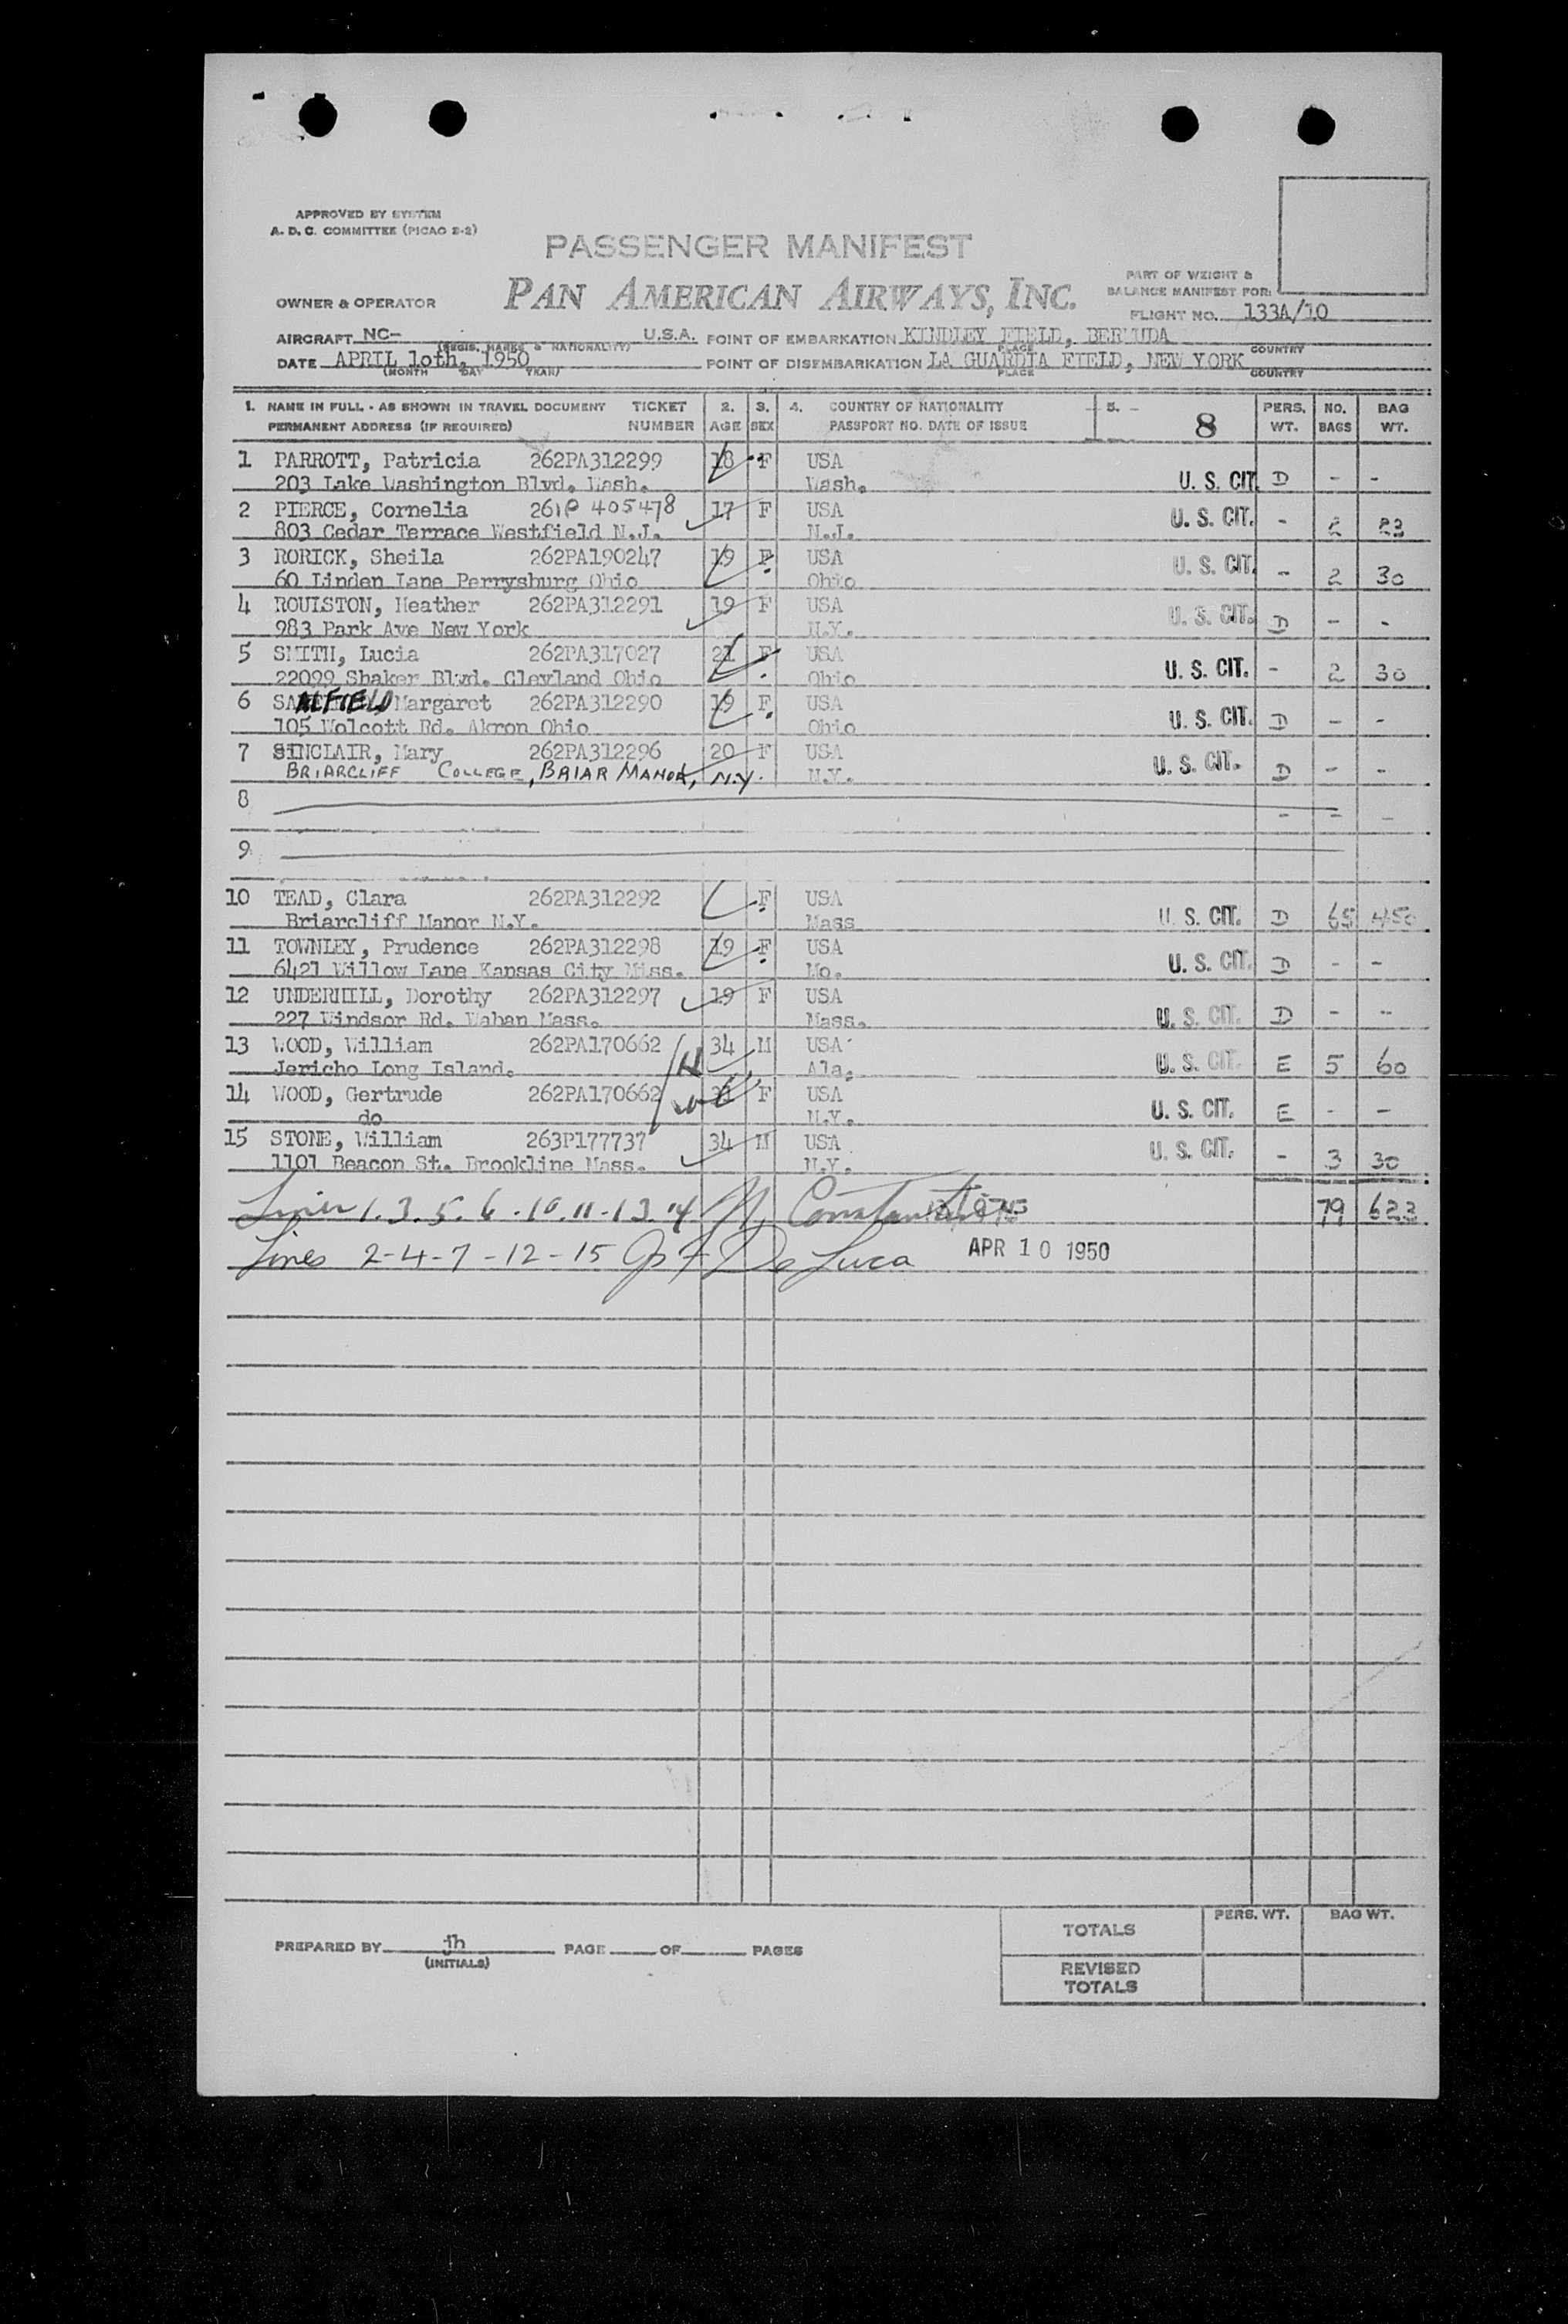 APPROVED BY SYSTEM
A. D. C. COMMITTEE (PICAO 2-2)
PASSENGER MANIFEST
PART OF WEIGHT &
BALANCE MANIFEST FOR:
OWNER & OPERATOR PAN AMERICAN AIRWAYS, INC.
FLIGHT NO. 133A/10
AIRCRAFT NC- U.S.A. POINT OF EMBARKATION KINDLEY FIELD, BERMUDA
(REGIS. MARKS & NATIONALITY) PLACE COUNTRY
DATE APRIL 10th, 1950 POINT OF DISEMBARKATION LA GUARDIA FIELD, NEW YORK
(MONTH DAY YEAR) PLACE COUNTRY
1. NAME IN FULL - AS SHOWN IN TRAVEL DOCUMENT TICKET 2. 3. 4. COUNTRY OF NATIONALITY 5. 8 PERS. NO. BAG
PERMANENT ADDRESS (IF REQUIRED) NUMBER AGE SEX PASSPORT NO. DATE OF ISSUE WT. BAGS WT.
1 PARROTT, Patricia 262PA312299 18 F USA
203 Lake Washington Blvd. Wash. Wash. U. S. CIT. D - -
2 PIERCE, Cornelia 261P 405478 17 F USA U. S. CIT.
803 Cedar Terrace Westfield N.J. N.J. - 2 23
3 RORICK, Sheila 262PA190247 19 F USA U. S. CIT.
60 Linden Lane Perrysburg Ohio Ohio - 2 30
4 ROULSTON, Heather 262PA312291 19 F USA U. S. CIT.
983 Park Ave New York N.Y. D - -
5 SMITH, Lucia 262PA317027 21 F USA
22099 Shaker Blvd. Clevland Ohio Ohio U. S. CIT. - 2 30
6 SAALFIELD, Margaret 262PA312290 19 F USA
105 Wolcott Rd. Akron Ohio Ohio U. S. CIT. D - -
7 SINCLAIR, Mary 262PA312296 20 F USA
BRIARCLIFF COLLEGE, BRIAR MANOR, N.Y. N.Y. U. S. CIT. D - -
8 - - -
9
10 TEAD, Clara 262PA312292 F USA
Briarcliff Manor N.Y. Mass U. S. CIT. D 65 450
11 TOWNLEY, Prudence 262PA312298 19 F USA
6421 Willow Lane Kansas City Miss. Mo. U. S. CIT. D - -
12 UNDERHILL, Dorothy 262PA312297 19 F USA
227 Windsor Rd. Waban Mass. Mass. U. S. CIT. D - -
13 WOOD, William 262PA170662 34 M USA
Jericho Long Island. H Ala. U. S. CIT. E 5 60
14 WOOD, Gertrude 262PA170662 F USA
do N.Y. U. S. CIT. E - -
15 STONE, William 263P177737 34 M USA U. S. CIT.
1101 Beacon St. Brookline Mass. N.Y. - 3 30
Lines 1. 3. 5. 6 - 10. 11 - 13. 14 79 623
Lines 2-4-7-12-15 De Luca APR 10 1950
PREPARED BY jh PAGE OF PAGES
(INITIALS)
PERS. WT. BAG WT.
TOTALS
REVISED
TOTALS